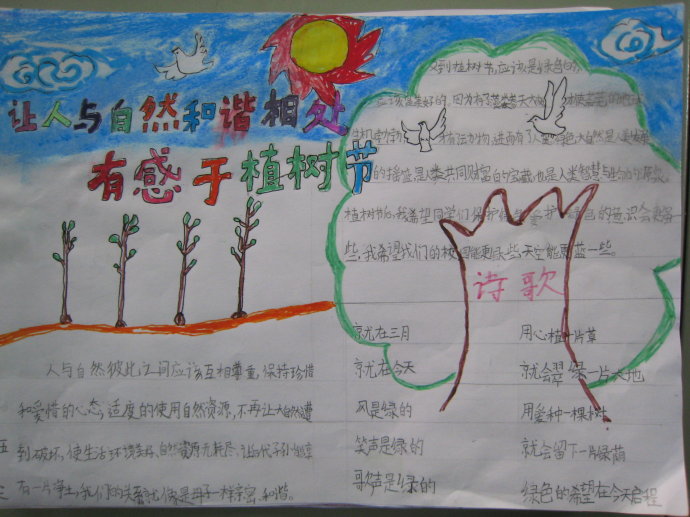 让人与自然和谐相处
有感于植树节
植树节应该是绿色的
应该是美好的，因为有了
的摇篮是人类共同财富的宝藏也是人类智慧与
植树节后，我希望同学们保护绿色爱护绿色的意识会更多一
些，我希望我们的校园能更绿些天空能更蓝一些。
诗歌
就在三月
就在今天
风是绿的
笑声是绿的
歌声是绿的
用心植一片草
就会翠绿一片大地
用爱种一棵树
就会留下一片绿荫
绿色的希望在今天启程
人与自然彼此之间应该互相尊重，保持珍惜
和爱惜的心态，适度的使用自然资源，不再让大自然遭
到破坏，使生活环境美好、自然资源无耗尽，让后代子孙
有一片净土，我们的关系就像是母子一样亲密、和谐。